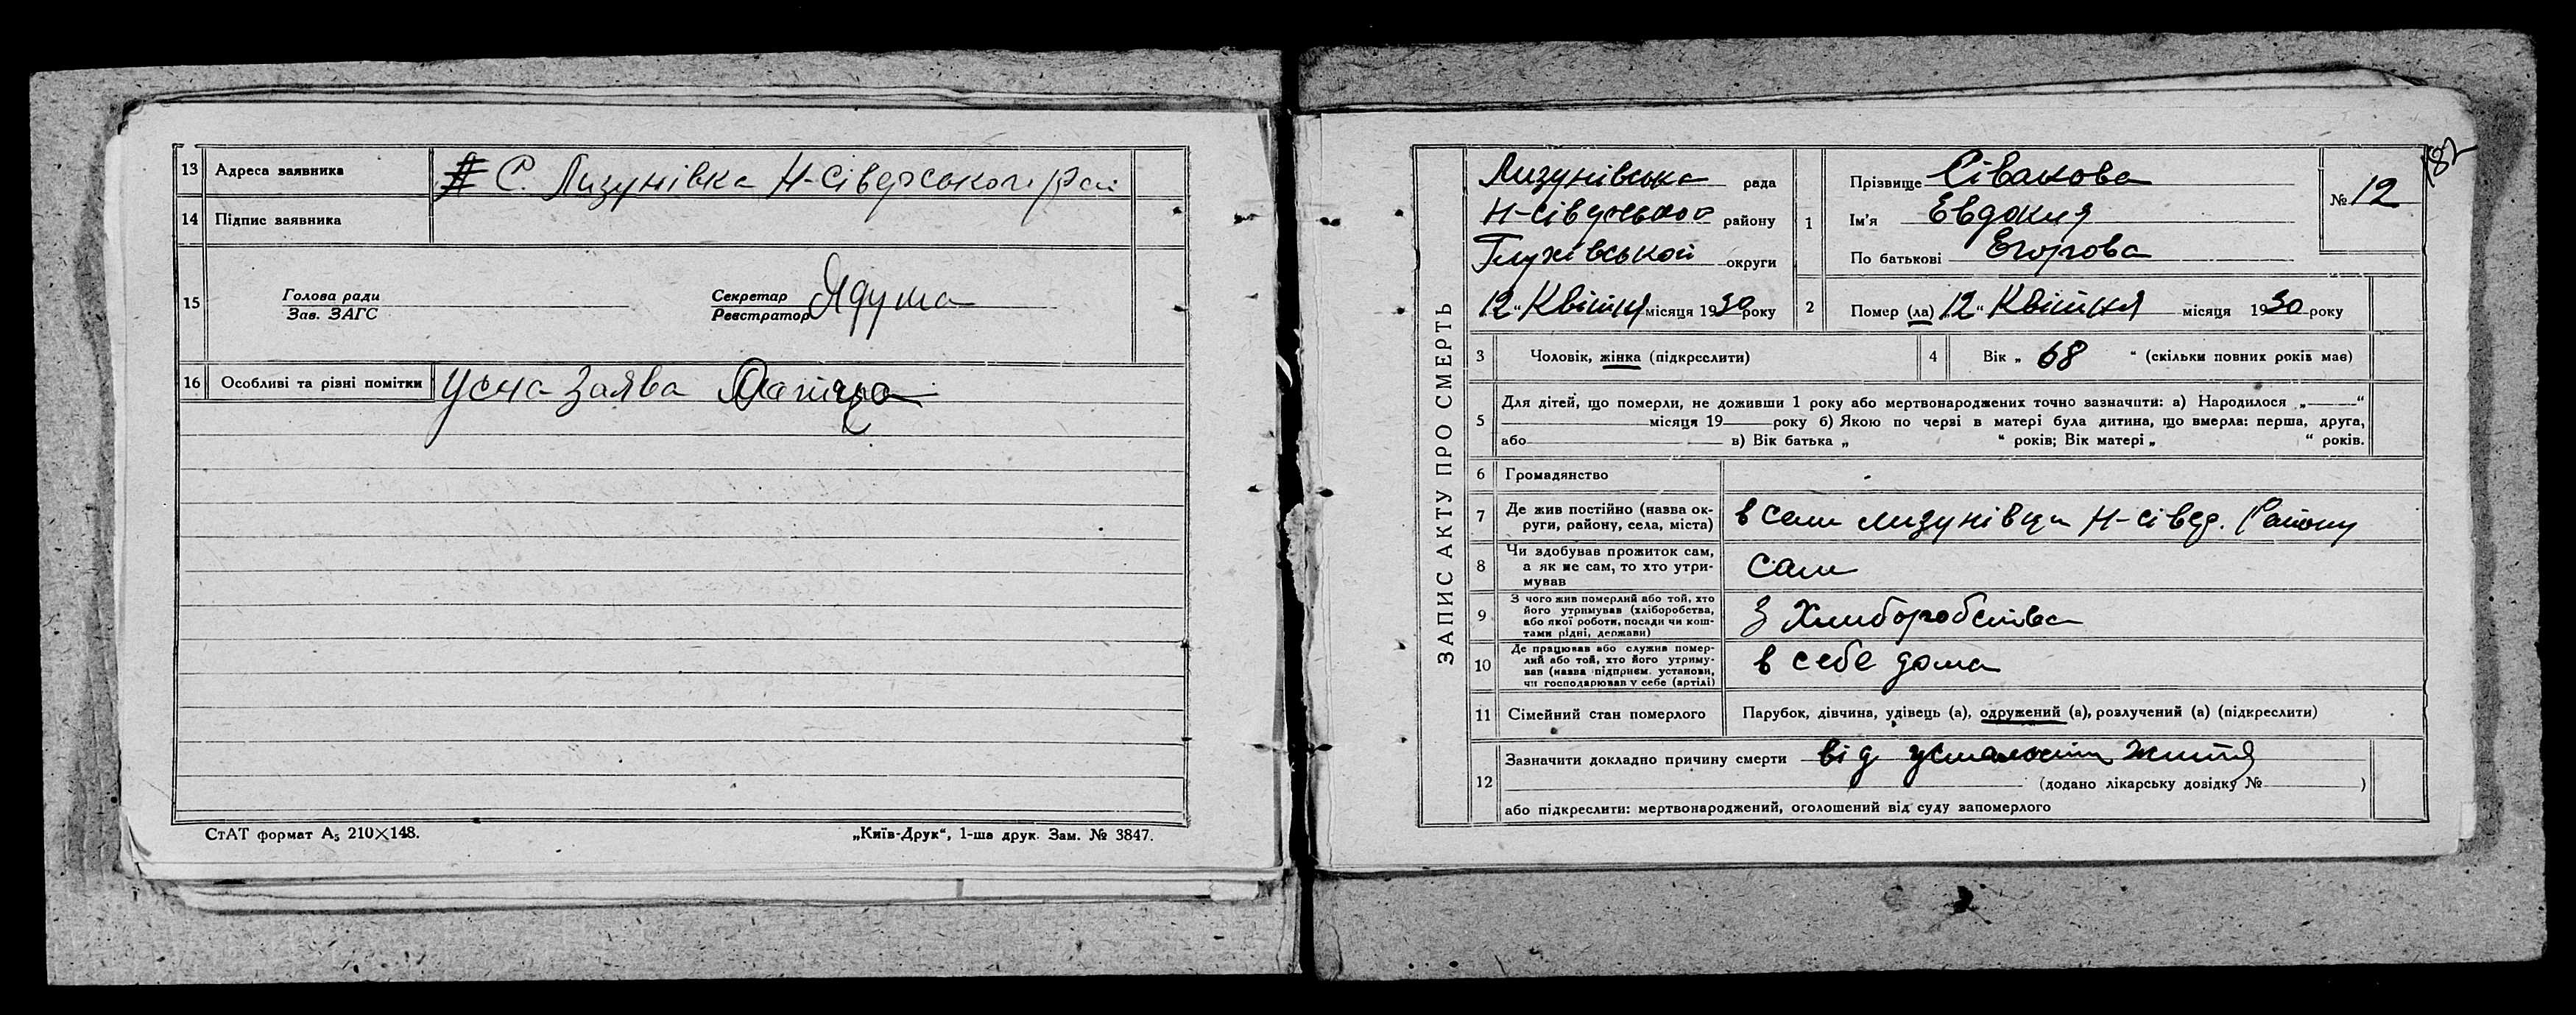 13 Адреса заявника С. Лизунівка Н-Сіверського рай
14 Підпис заявника
15 Голова ради
Зав. ЗАГС
Секретар
Реєстратор Ядума
16 Особливі та різні помітки Усна заява
СтАТ формат А5 210×148.
„Київ-Друк“, 1-ша друк. Зам. № 3847.
182
ЗАПИС АКТУ ПРО СМЕРТЬ
Лизунівська рада
Н-Сівдського району
Глухівської округи
12 “ Квітня місяця 1930 року
1 Прізвище Сівакова
Ім'я Евдокия
По батькові Егорова
№ 12
2 Помер (ла) „12“ Квітня місяця 1930 року
3 Чоловік, жінка (підкреслити)
4 Вік „ 68 “ (скільки повних років мав)
5 Для дітей, що померли, не доживши 1 року або мертвонароджених точно зазначити: а) Народилося „ “
місяця 19 року б) Якою по черві в матері була дитина, що вмерла: перша, друга,
або в) Вік батька „ “ років; Вік матері „ “ років.
6 Громадянство
7 Де жив постійно (назва ок-
руги, району, села, міста) в Сели Лизунівци Н-Сівер. Району
8 Чи здобував прожиток сам,
а як не сам, то хто утри-
мував сам
9 З чого жив померлий або той, хто
його утримував (хліборобства,
або якої роботи, посади чи кош-
тами рідні, держави) З Хлиборобства
10 Де працював або служив помер-
лий або той, хто його утриму-
вав (назва підприєм. установи,
чи господарював у себе (артілі) в себе дома
11 Сімейний стан померлого Парубок, дівчина, удівець (а), одружений (а), розлучений (а) (підкреслити)
12 Зазначити докладно причину смерти від усталости життя
(додано лікарську довідку № )
або підкреслити: мертвонароджений, оголошений від суду запомерлого